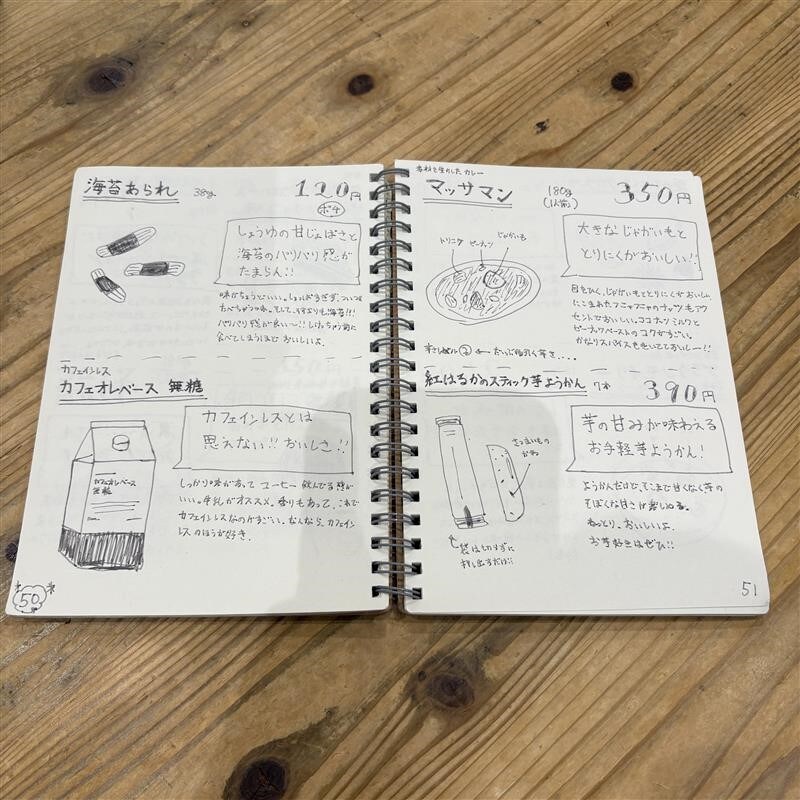 海苔あられ 38g 120円
ポチ
しょうゆの甘じょぱさと
海苔のパリパリ感が
たまらん!!
味がちょうどいい。しょっぱすぎず、ついつい
たべちゃう味。そして、やはりも海苔!!!
パリパリ感が良い〜!! しけっちゃう前に
食べてしまうほどおいしいよ。
カフェインレス
カフェオレベース 無糖
カフェインレスとは
思えない!! おいしさ!!
カフェオレベース
無糖
しっかり味があってコーヒー飲んでる感が
いい。牛乳がオススメ。香りもあって、これで
カフェインレスなのがすごい。なんなら、カフェイン
レスのほうが好き。
50
素材を生かしたカレー
マッサマン 180g (1人前) 350円
トリニク
ピーナッツ
じゃがいも
大きなじゃがいもと
とりにくがおいしい!!
目をひく、じゃがいもととりにくがおいしい。
にこまれたフニャフニャのナッツもアク
セントでおいしい。ココナッツミルクと
ピーナッツペーストのコクがすごい。
かなりスパイスもきいてておいしー!!
辛さレベル ②
紅はるかのスティック芋ようかん 7本 390円
さつまいもの
かわ
芋の甘みが味わえる
お手軽芋ようかん!
ようかんだけど、そこまで甘くなく芋の
そぼくな甘さが楽しめる。
ねっとり、おいしいよ。
お芋好きはぜひ!!
袋は切らずに
押し出すだけ!!
51